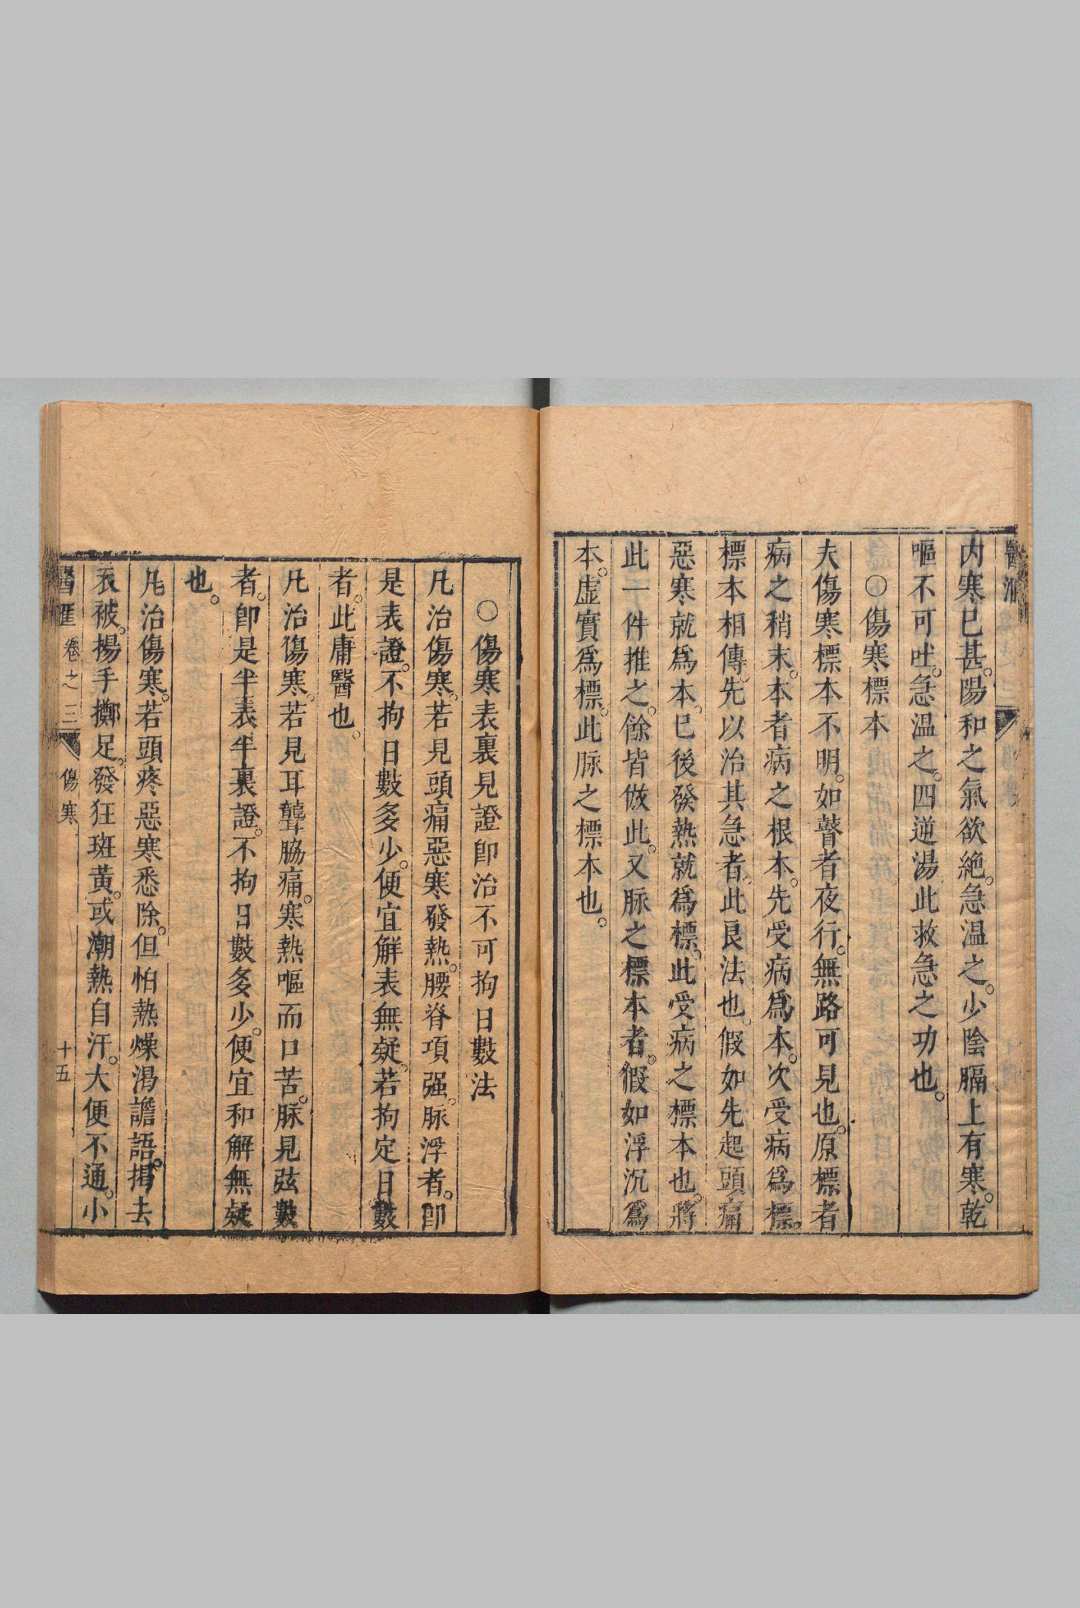 醫滙
內寒已甚。陽和之氣欲絶。急温之。少陰膈上有寒。乾
嘔不可吐。急温之。四逆湯此救急之功也。
○傷寒標本
夫傷寒標本不明。如瞽者夜行。無路可見也。原標者
病之稍末。本者病之根本。先受病爲本。次受病爲標。
標本相傳。先以治其急者。此良法也。假如先起頭痛
惡寒就爲本。已後發熱就爲標。此受病之標本也。將
此一件推之。餘皆倣此。又脉之標本者。假如浮沉爲
本。虚實爲標。此脉之標本也。
○傷寒表裏見證卽治不可拘日數法
凡治傷寒。若見頭痛惡寒發熱。腰脊項强。脉浮者。卽
是表證。不拘日數多少。便宜解表無疑。若拘定日數
者。此庸醫也。
凡治傷寒。若見耳聾脇痛。寒熱嘔而口苦。脉見弦數
者。卽是半表半裏證。不拘日數多少。便宜和解無疑
也。
凡治傷寒。若頭疼惡寒悉除。但怕熱燥渴譫語。揭去
衣被。揚手擲足。發狂斑黃。或潮熱自汗。大便不通。小
醫滙 卷之三 傷寒 十五